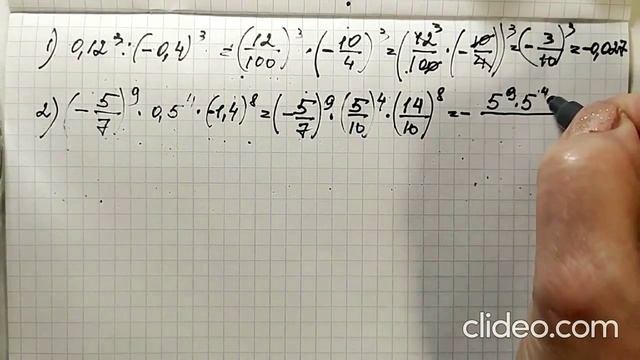 1) 0,12³ : (-0,4)³ = (12/100)³ · (-10/4)³ = (12/100 · (-10/4))³ = (-3/10)³ = -0,027
2) (-5/7)⁹ · 0,5⁴ · (-1,4)⁸ = (-5/7)⁹ · (5/10)⁴ · (14/10)⁸ = - 5⁹ · 5⁴
clideo.com